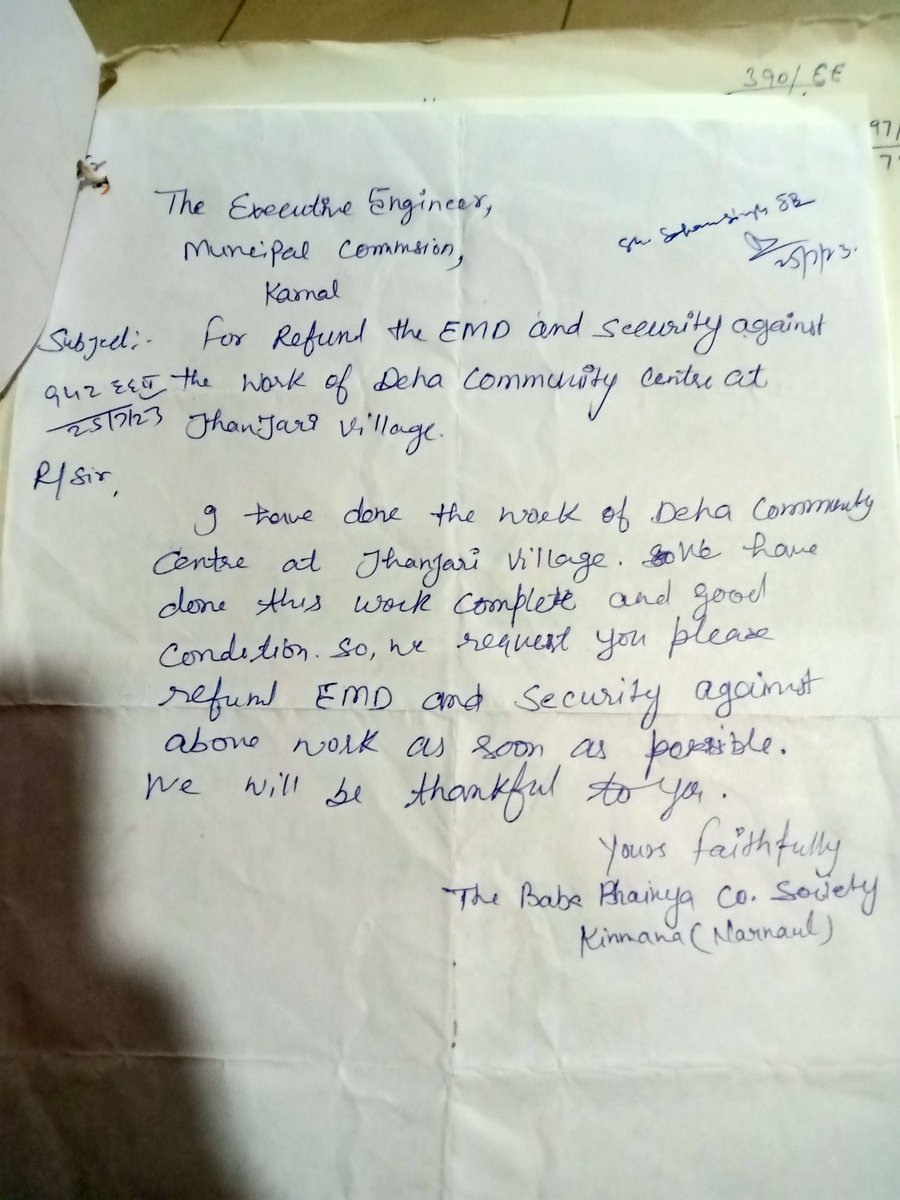 390/EE
97/
The Executive Engineer,
Muncipal Commsion,
Karnal
25/7/23.
Subject:- For Refund the EMD and Security against
the work of Deha Community Centre at
25/7/23 Jhanjari village.
R/Sir,
I have done the work of Deha Community
Centre at Jhanjari village. We have
done this work complete and good
Condition. So, we request you please
refund EMD and Security against
above work as soon as possible.
We will be thankful to you.
Yours faithfully
The Baba Bhainya Co. Society
Kinmana (Narnaul)